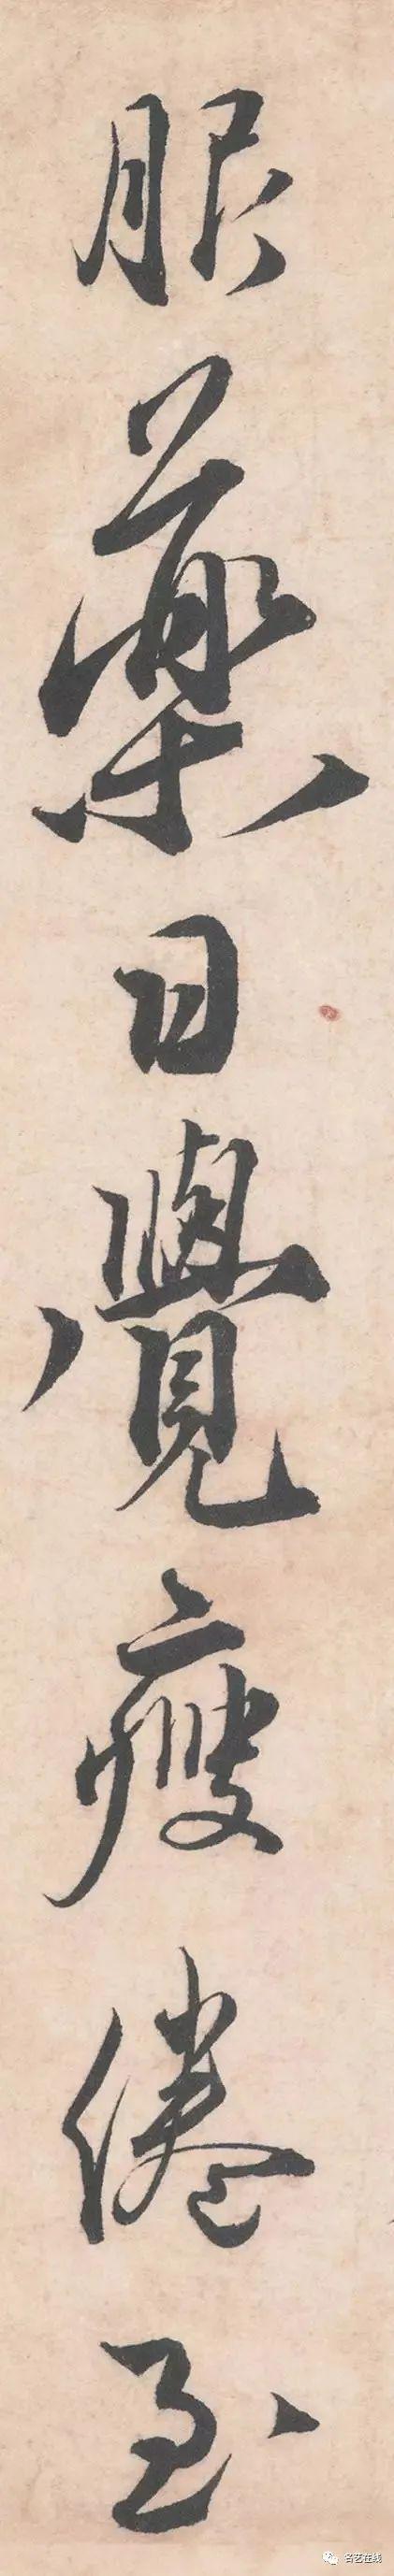 服藥日覺瘦倦至
名艺在线